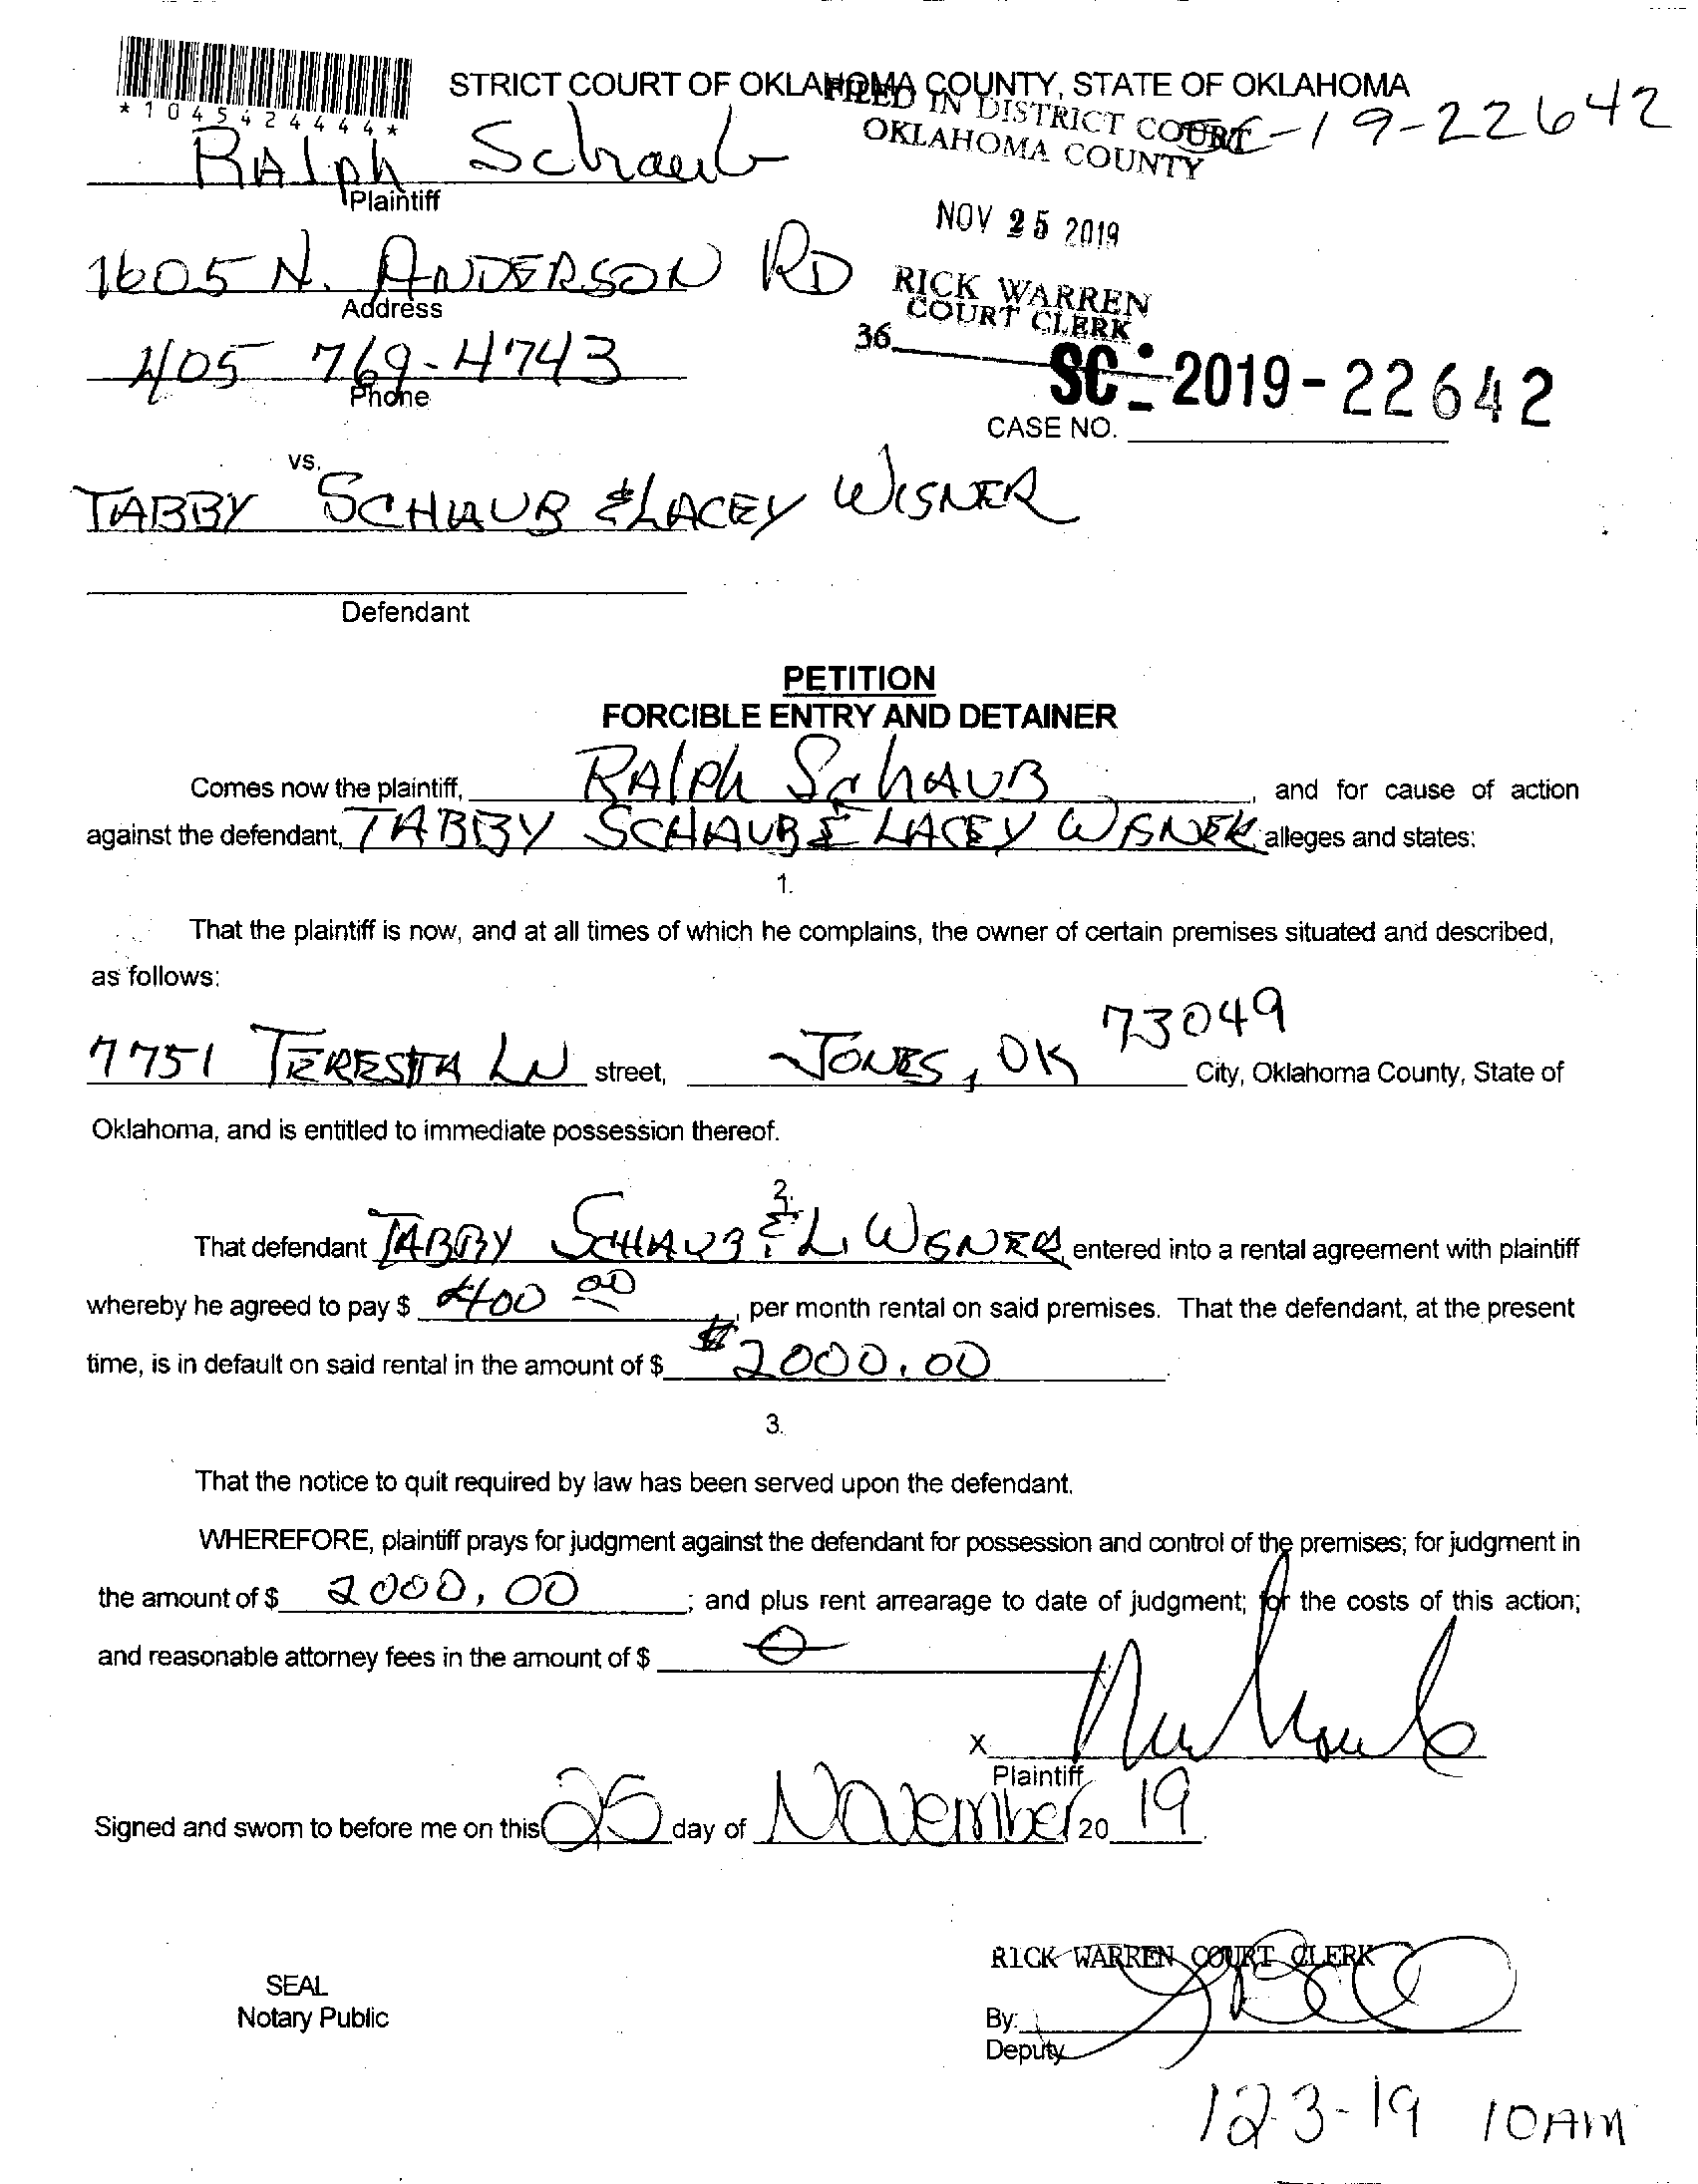 STRICT COURT OF OKLAHOMA COUNTY, STATE OF OKLAHOMA
*1045424444*
FILED IN DISTRICT COURT
OKLAHOMA COUNTY
SC-19-22642
RAlph Schaub
Plaintiff
NOV 25 2019
1605 N. ANDERSON RD
Address
RICK WARREN
COURT CLERK
36
405 769-4743
Phone
SC-2019-22642
CASE NO.
vs.
TABBY SCHAUB & LACEY WISNER
Defendant
PETITION
FORCIBLE ENTRY AND DETAINER
Comes now the plaintiff, RAlph SchAUB, and for cause of action
against the defendant, TABBY SCHAUB & LACEY WISNER alleges and states:
1.
That the plaintiff is now, and at all times of which he complains, the owner of certain premises situated and described,
as follows:
7751 TERESTA LN street, JONES, OK 73049 City, Oklahoma County, State of
Oklahoma, and is entitled to immediate possession thereof.
2.
That defendant TABBY SCHAUB & L. WISNER, entered into a rental agreement with plaintiff
whereby he agreed to pay $ 400 00, per month rental on said premises. That the defendant, at the present
time, is in default on said rental in the amount of $ $2000.00
3.
That the notice to quit required by law has been served upon the defendant.
WHEREFORE, plaintiff prays for judgment against the defendant for possession and control of the premises; for judgment in
the amount of $ 2000,00; and plus rent arrearage to date of judgment; for the costs of this action;
and reasonable attorney fees in the amount of $ 0
X
Plaintiff
Signed and sworn to before me on this 25 day of November 20 19.
RICK WARREN COURT CLERK
SEAL
Notary Public
By:
Deputy
12-3-19 10AM